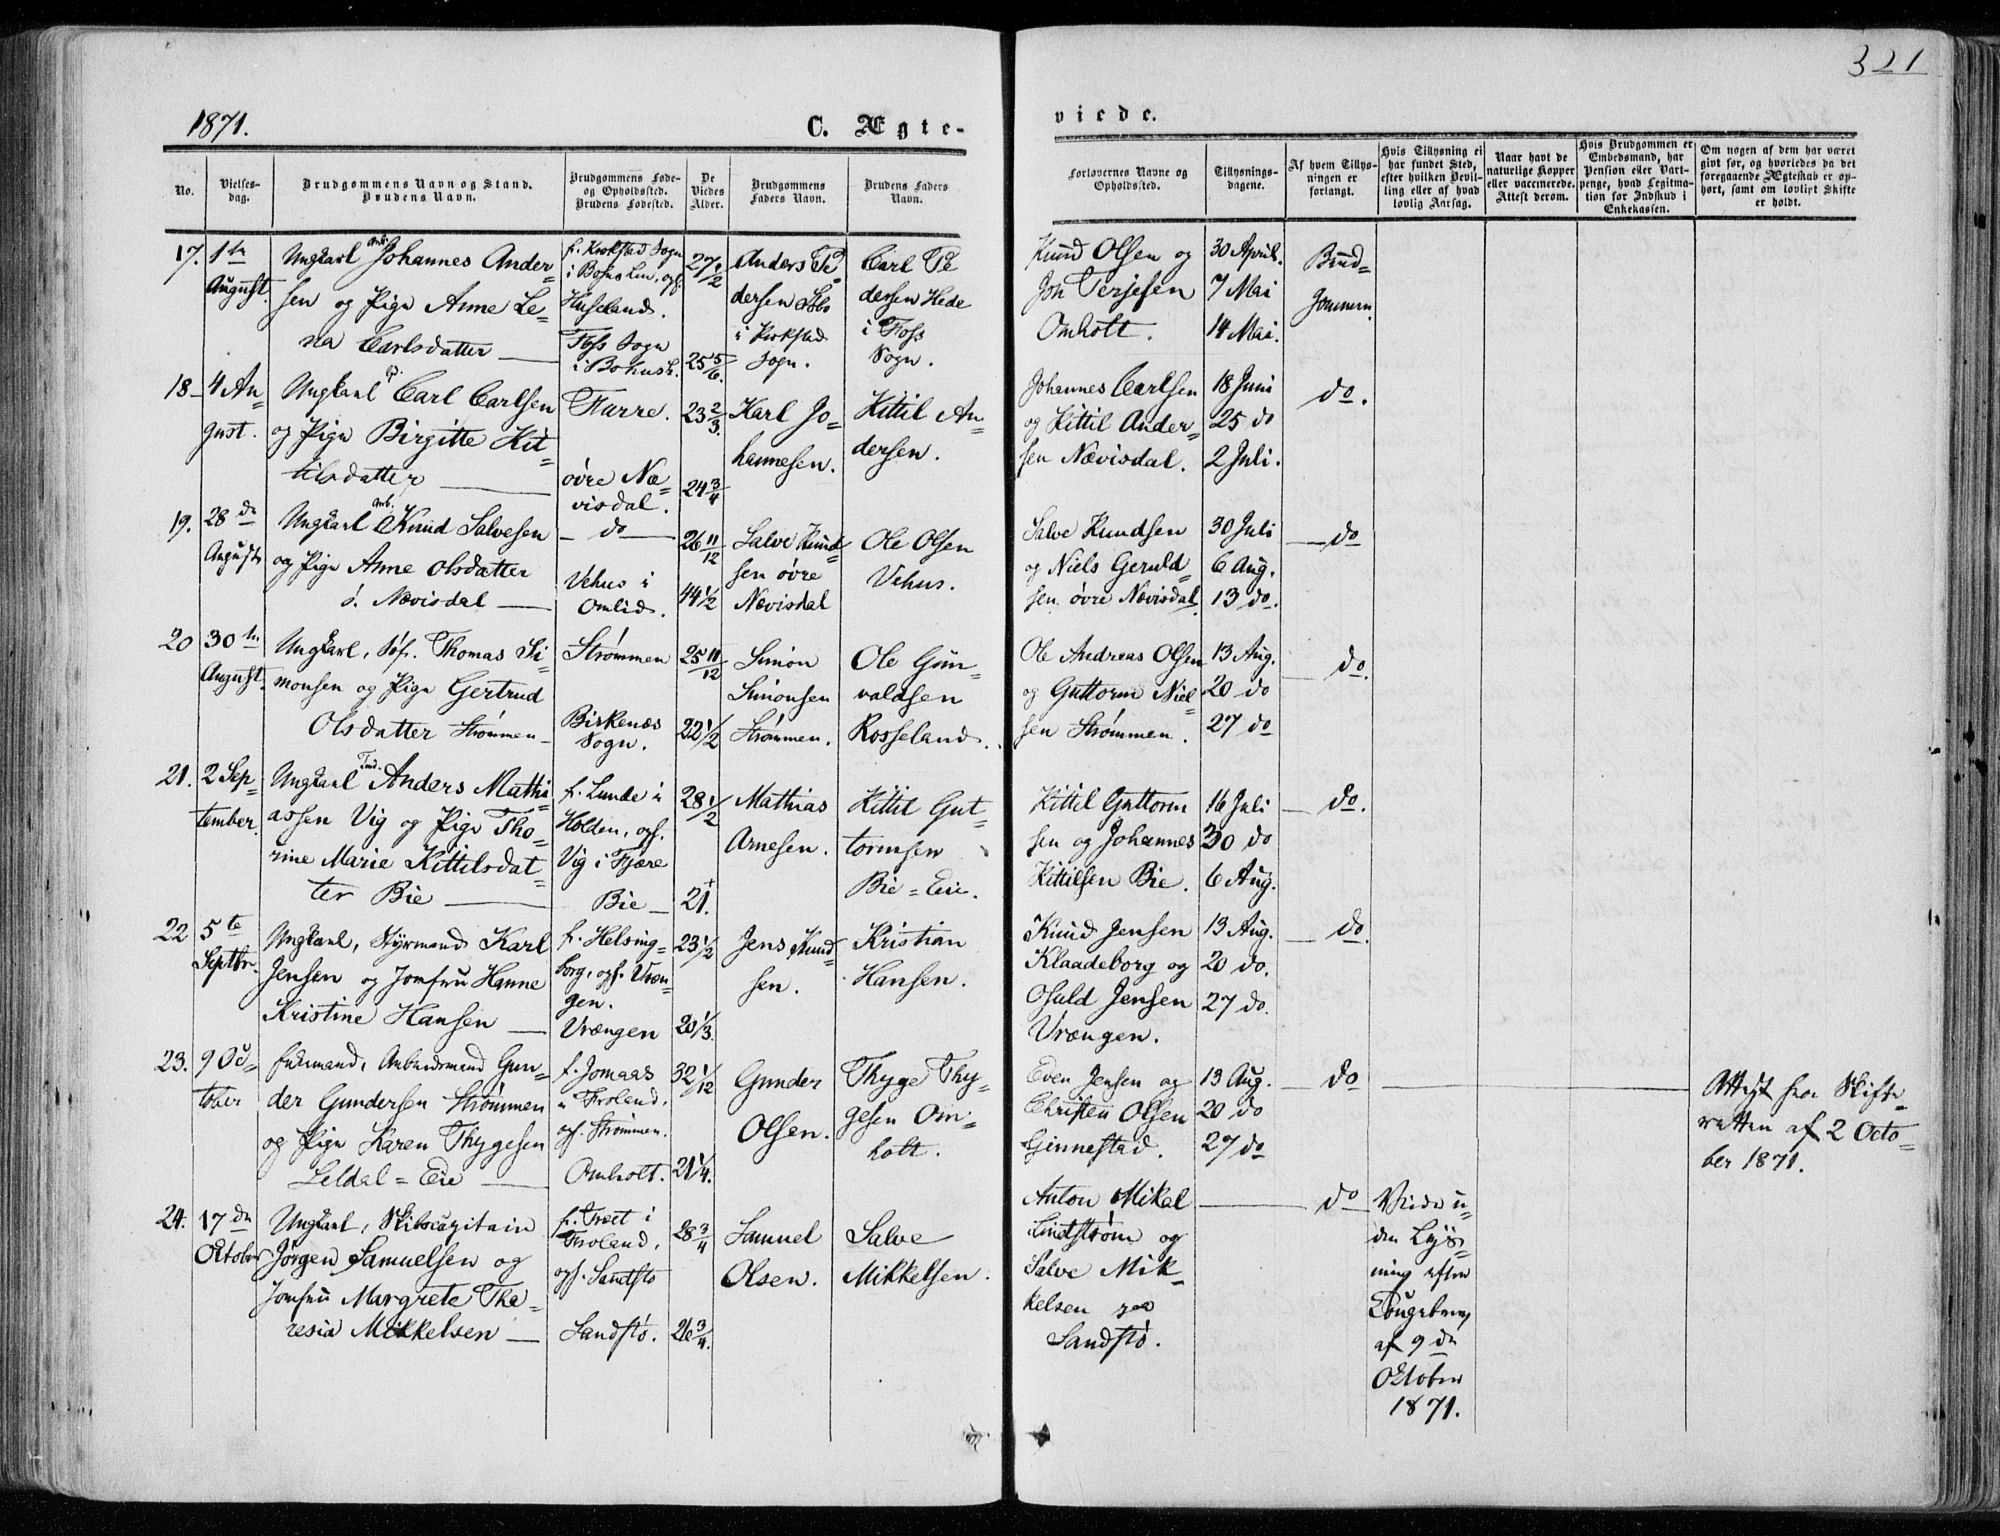 321
1871.
C. Ægte-
viede.
No.
Vielses-
dag.
Brudgommens Navn og Stand.
Brudens Navn.
Brudgommens Føde-
og Opholdssted.
Brudens Fødested.
De
Viedes
Alder.
Brudgommens
Faders Navn.
Brudens Faders
Navn.
Forlovernes Navne og
Opholdssted.
Tillysnings-
dagene.
Af hvem Tillys-
ningen er
forlangt.
Hvis Tillysning ei
har fundet Sted,
efter hvilken Bevil-
ling eller af hvad
lovlig Aarsag.
Naar havt de
naturlige Kopper
eller vaccinerede.
Attest derom.
Hvis Brudgommen er
Embedsmand, har
Pension eller Vart-
penge, hvad Legitima-
tion for Indskud i
Enkekassen.
Om nogen af dem har været
givt før, og hvorledes da det
foregaaende Ægteskab er op-
hørt, samt om lovligt Skifte
er holdt.
17.
1ste
August.
Ungkarl Arb. Johannes Ander=
sen og Pige Anne Le=
na Carlsdatter
f. Krokstad Sogn
i Bohus Len, opf.
Huseland.
Foss Sogn
i Bohusl.
27 1/2
25 5/6.
Anders Pe=
dersen
i Krokstad
Sogn.
Carl Pe
dersen Hede
i Foss
Sogn.
Knud Olsen og
Joh Terjesen
Omholt.
30 April.
7 Mai
14 Mai.
Brud=
gommen.
18
4 Au=
gust.
Ungkarl Carl Carlsen
og Pige Birgitte Kit=
tilsdatter
Furre.
øvre Næ=
visdal.
23 2/3.
24 3/4
Karl Jo=
hannesen.
Kittil An=
dersen.
Johannes Carlsen
og Kittil Ander=
sen Nævisdal.
18 Juni
25 do
2 Juli.
do.
19.
28de
August
Ungkarl Arb. Knud Salvesen
og Pige Anne Olsdatter
ø. Nævisdal
do
Vehus i
Omlid.
26 11/12
44 1/2
Salve Knud=
sen øvre
Nævisdal
Ole Olsen
Vehus.
Salve Knudsen
og Niels Geruld=
sen øvre Nævisdal.
30 Juli
6 Aug.
13 do.
do
20
30te
August.
Ungkarl, Søf. Thomas Si=
monsen og Pige Gertrud
Olsdatter Strømmen
Strømmen
Birkenæs
Sogn.
25 11/12
22 1/2
Simon
Simonsen
Strømmen.
Ole Gun=
valdsen
Rosseland.
Ole Andreas Olsen
og Guttorm Niel=
sen Strømmen.
13 Aug.
20 do
27 do
do.
21.
2 Sep=
tember.
Ungkarl Tmd. Anders Mathi=
assen Vig og Pige Tho=
rine Marie Kittilsdat=
ter Bie
f. Lunde i
Holden, opf.
Vig i Fjære
Bie
28 1/2
21.
Mathias
Arnesen.
Kittil Gut=
tormsen
Bie=Eie.
Kittil Guttorm
sen og Johannes
Kittilsen Bie.
16 Juli
30 do
6 Aug.
do.
22
5te
Septbr.
Ungkarl, Styrmand Karl
Jensen og Jomfru Hanne
Kristine Hansen
f. Helsing=
borg, opf. Vræn=
gen.
Vrængen
23 1/2
20 1/3.
Jens Knud=
sen.
Kristian
Hansen.
Knud Jensen
Klaadeborg og
Osuld Jensen
Vrængen.
13 Aug.
20 do.
27 do.
do.
23.
9 Oc=
tober
Enkemand, Arbeidsmand Gun=
der Gundersen Strømmen
og Pige Karen Thygesen
Leldal=Eie
f. Jomaas
i Froland,
opf. Strømmen.
Omholt.
32 1/12
21 1/4.
Gunder
Olsen.
Thyge Thy=
gesen Om=
holt.
Even Jensen og
Christen Olsen
Ginnestad.
13 Aug.
20 do
27 do
do
Attest fra Skifte=
retten af 2 Octo=
ber 1871.
24.
17de
October
Ungkarl, Skibscapitain
Jørgen Samuelsen og
Jomfru Margrete The=
resia Mikkelsen
f. Træet i
Froland,
opf. Sandstø
Sandstø.
28 3/4
26 3/4.
Samuel
Olsen.
Salve
Mikkelsen.
Anton Mikal
Lindstrøm og
Salve Mik=
kelsen paa
Sandstø.
do
Viede u=
den Lys=
ning efter
af 9de
October
1871.